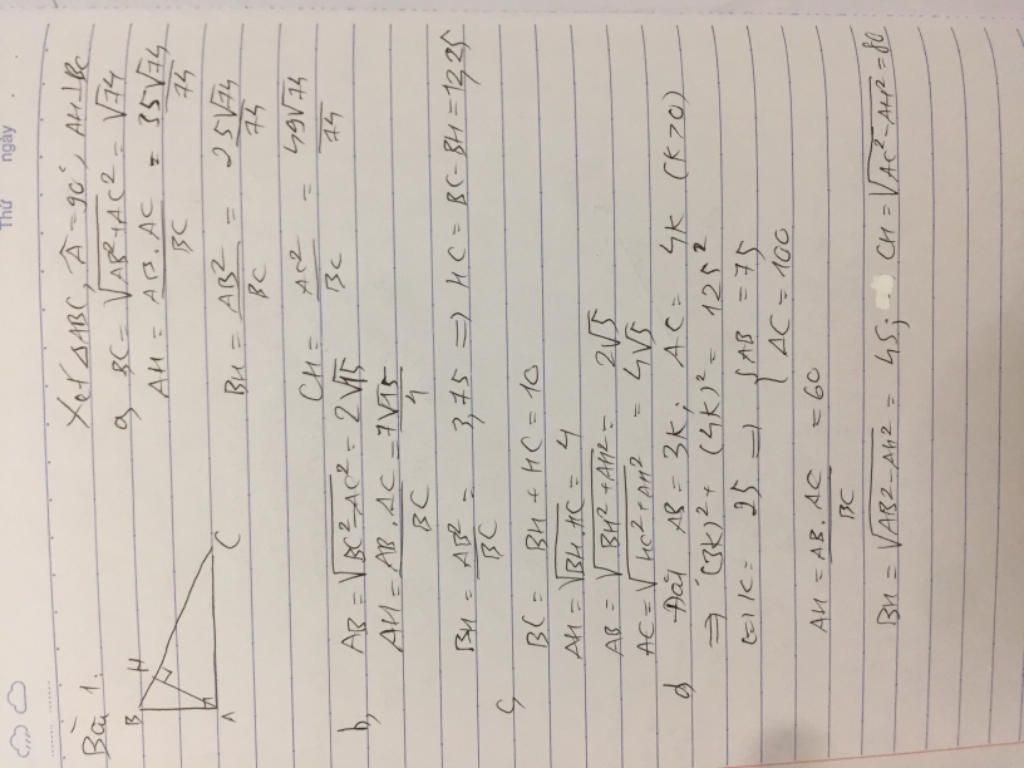 Thứ ngày
Bài 1.
Xét ΔABC, Â = 90°, AH⊥BC
B H C A
a, BC = √(AB²+AC²) = √74
AH = AB.AC/BC = 35√74/74
BH = AB²/BC = 25√74/74
CH = AC²/BC = 49√74/74
b, AB = √(BC²-AC²) = 2√15
AH = AB.AC/BC = 7√15/4
BH = AB²/BC = 3,75 => HC = BC-BH = 12,25
c,
BC = BH + HC = 10
AH = √(BH.HC) = 4
AB = √(BH²+AH²) = 2√5
AC = √(HC²+AH²) = 4√5
d, Đặt AB = 3K; AC = 4K (K>0)
=> (3K)² + (4K)² = 125²
<=> K = 25 => { AB = 75
AC = 100
AH = AB.AC/BC = 60
BH = √(AB²-AH²) = 45; CH = √(AC²-AH²) = 80